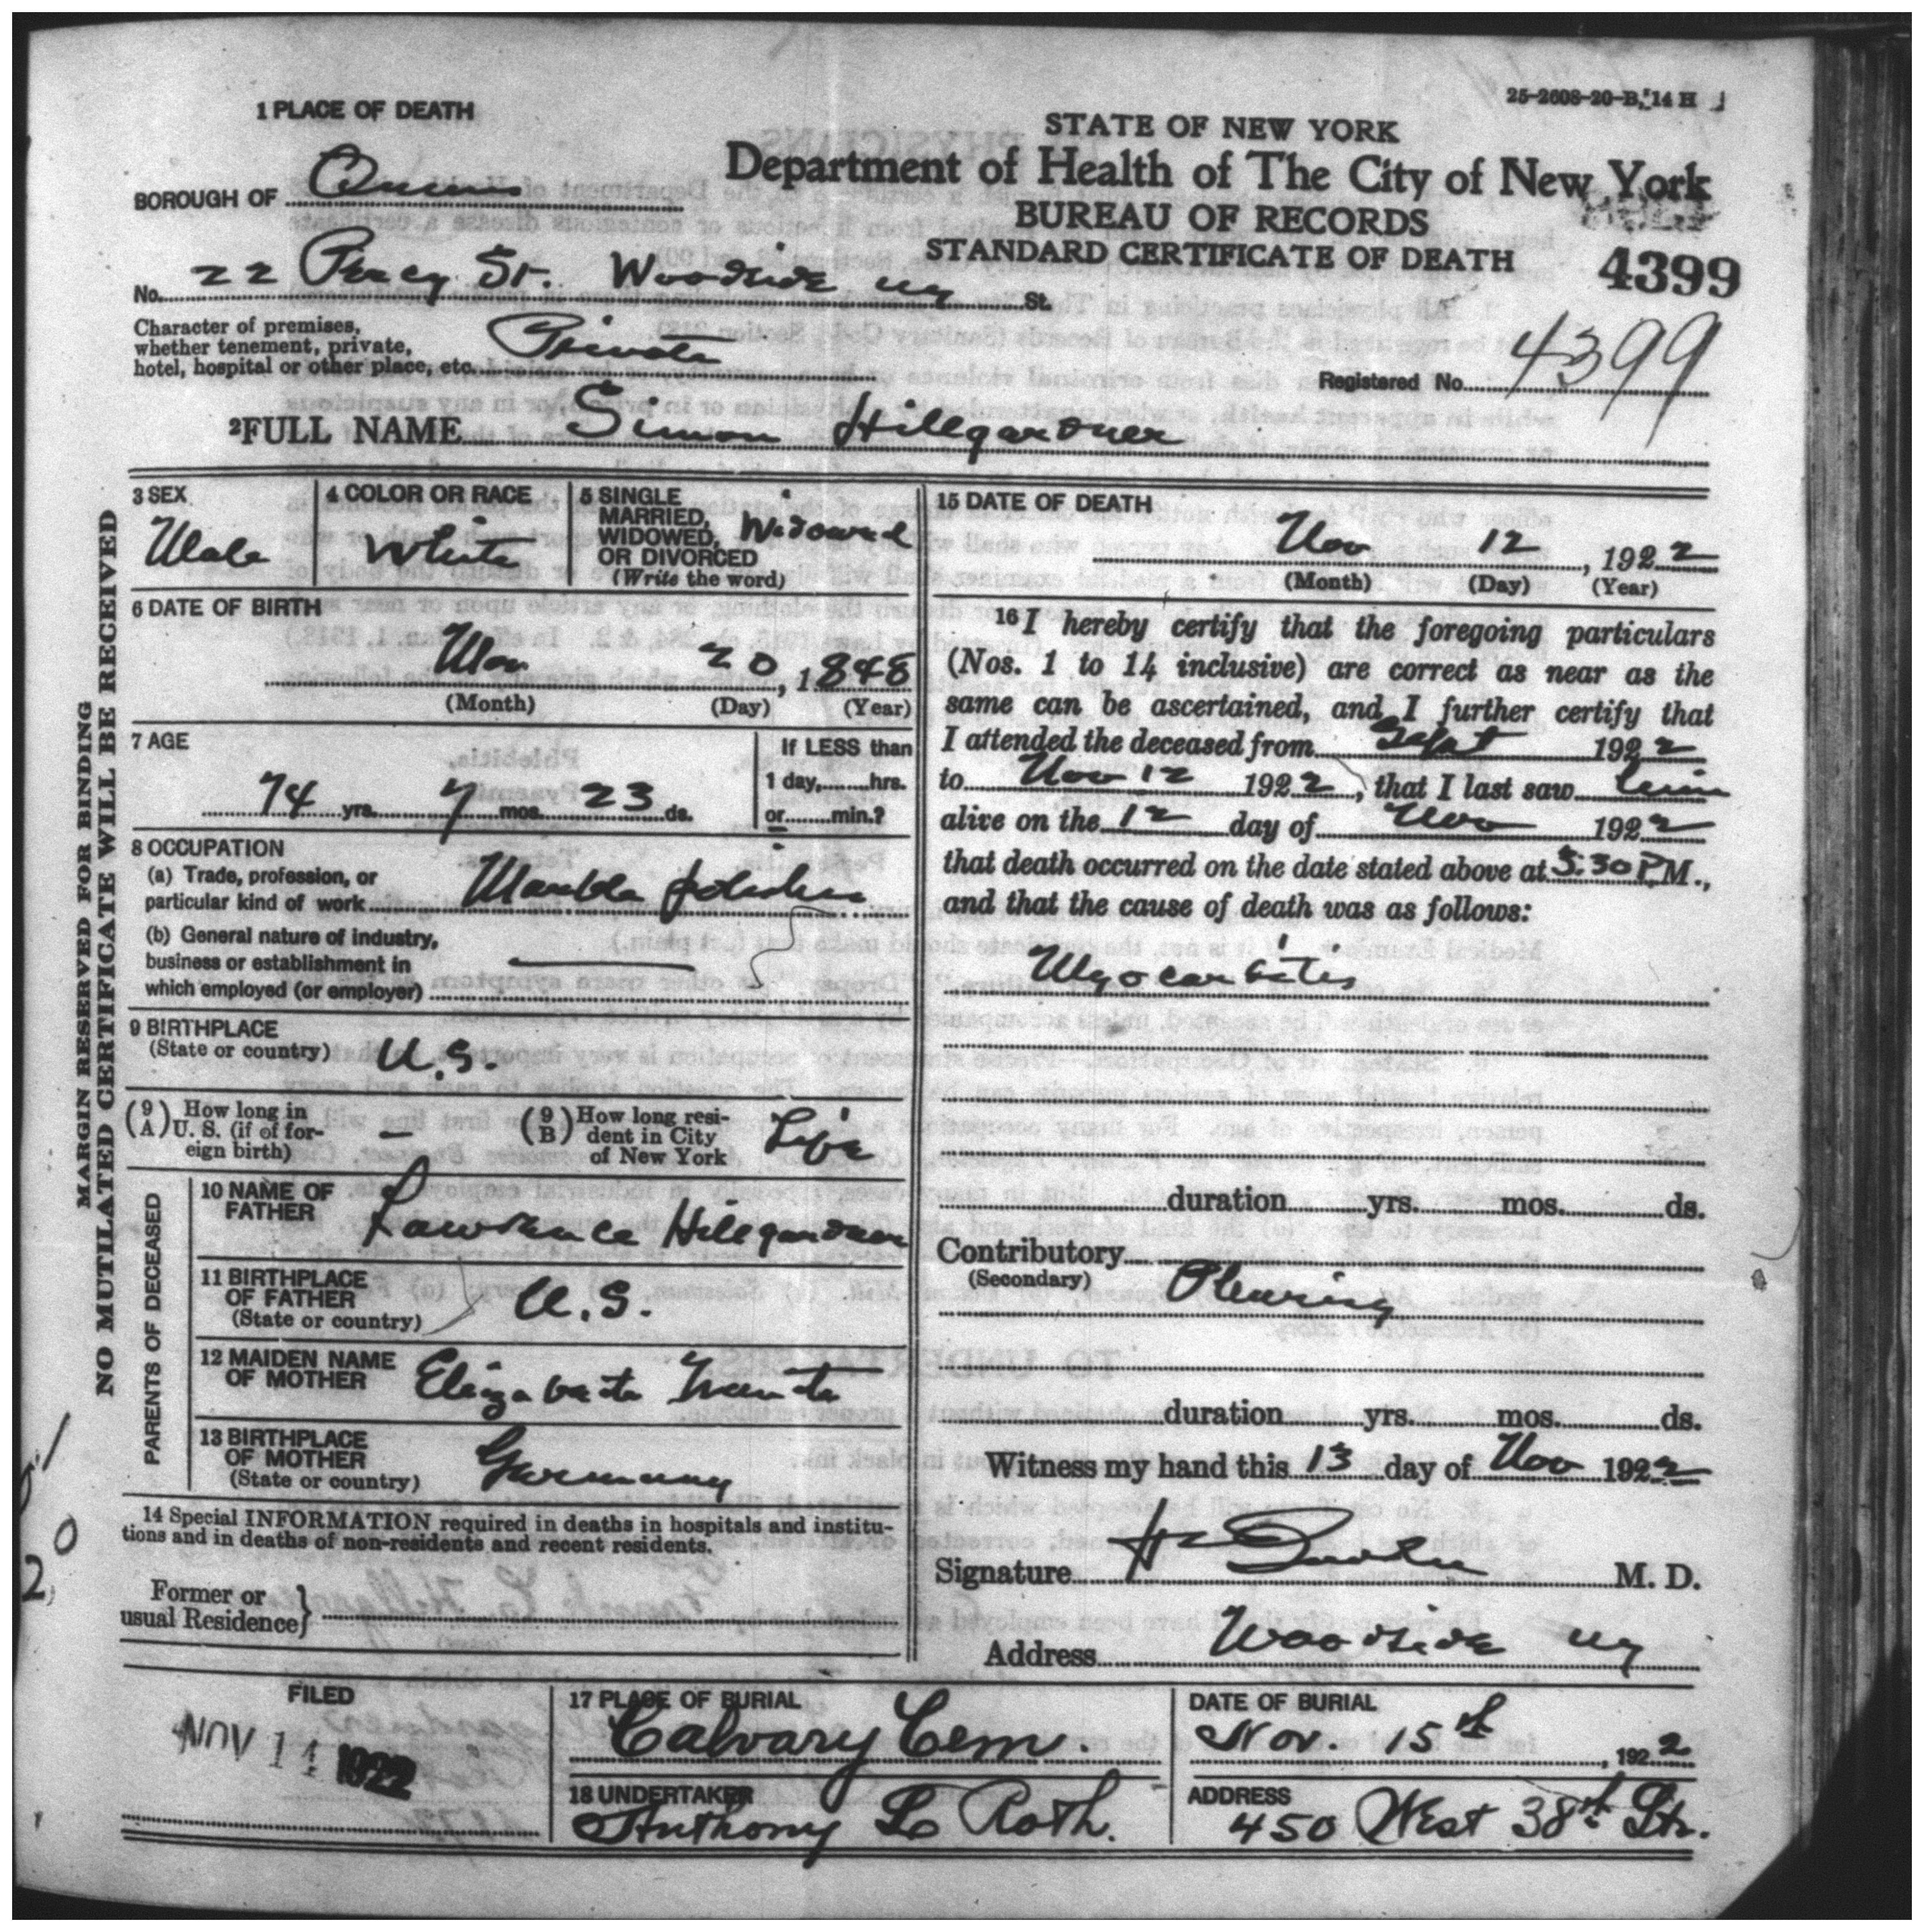 25-2608-20-B, '14 H
1 PLACE OF DEATH
STATE OF NEW YORK
Department of Health of The City of New York
BUREAU OF RECORDS
STANDARD CERTIFICATE OF DEATH
4399
BOROUGH OF Queens
No. 22 Percy St. Woodside NY St.
Character of premises, whether tenement, private, hotel, hospital or other place, etc. Private
Registered No. 4399
2 FULL NAME Simon Hillgardner
MARGIN RESERVED FOR BINDING
NO MUTILATED CERTIFICATE WILL BE RECEIVED
3 SEX
Male
4 COLOR OR RACE
White
5 SINGLE
MARRIED,
WIDOWED,
OR DIVORCED
(Write the word)
Widowed
6 DATE OF BIRTH
Mar 20, 1848
(Month) (Day) (Year)
7 AGE
74 yrs. 7 mos. 23 ds.
If LESS than
1 day, hrs.
or min.?
8 OCCUPATION
(a) Trade, profession, or
particular kind of work Marble polisher
(b) General nature of industry,
business or establishment in
which employed (or employer)
9 BIRTHPLACE
(State or country) U.S.
(9 A) How long in
U. S. (if of for-
eign birth) —
(9 B) How long resi-
dent in City
of New York Life
PARENTS OF DECEASED
10 NAME OF
FATHER
Lawrence Hillgardner
11 BIRTHPLACE
OF FATHER
(State or country) U.S.
12 MAIDEN NAME
OF MOTHER Elizabeth
13 BIRTHPLACE
OF MOTHER
(State or country) Germany
14 Special INFORMATION required in deaths in hospitals and institu-
tions and in deaths of non-residents and recent residents.
Former or
usual Residence}
15 DATE OF DEATH
Nov 12, 1922
(Month) (Day) (Year)
16 I hereby certify that the foregoing particulars
(Nos. 1 to 14 inclusive) are correct as near as the
same can be ascertained, and I further certify that
I attended the deceased from Sept 1922
to Nov 12 1922, that I last saw him
alive on the 12 day of Nov 1922
that death occurred on the date stated above at 5:30 P.M.,
and that the cause of death was as follows:
Myocarditis
duration yrs. mos. ds.
Contributory
(Secondary) Pleurisy
duration yrs. mos. ds.
Witness my hand this 13 day of Nov 1922
Signature M. D.
Address Woodside NY
FILED
NOV 14 1922
17 PLACE OF BURIAL
Calvary Cem.
DATE OF BURIAL
Nov. 15th, 1922
18 UNDERTAKER
Anthony L Roth.
ADDRESS
450 West 38th Str.